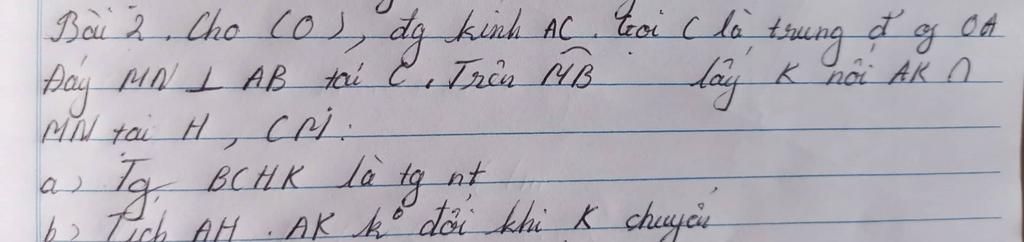 Bài 2. Cho (O), đg kính AC. Gọi C là trung đ' of OA
Dây MN ⊥ AB tại C. Trên MB lấy K nối AK ∩
MN tại H, CM:
a) Tg BCHK là tg nt
b) Tích AH . AK k° đổi khi K chuyển